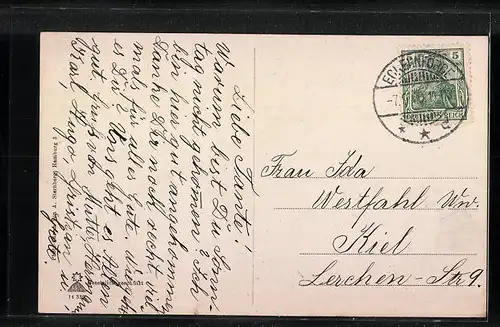 Liebe Tante!
Warum bist Du Sonn-
tag nicht gekommen? Ich
bin hier gut angekommen,
Danke Dir noch recht viel-
mals für alles Gute. Wie geht
es Dir? Uns geht es allen
gut. Gruß von Mutter, Hermann,
Karl, Hugo, Christian u.
Grete.
Frau Ida
Westfahl Ww.
Kiel
Lerchen-Str 9.
ECKERNFÖRDE
5
REICH
A. Sternberg, Hamburg